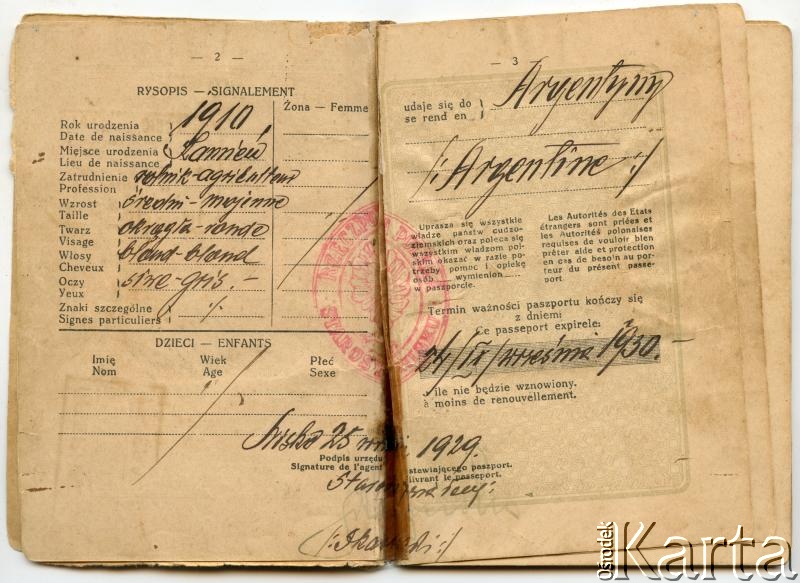 — 2 —
RYSOPIS — SIGNALEMENT
Rok urodzenia
Date de naissance
1910
Miejsce urodzenia
Lieu de naissance
Kamień
Zatrudnienie
Profession
rolnik-agriculteur
Wzrost
Taille
średni-moyenne
Twarz
Visage
okrągła-ronde
Włosy
Cheveux
blond-blond
Oczy
Yeux
siwe-gris.-
Znaki szczególne
Signes particuliers
:/.
Żona — Femme
DZIECI — ENFANTS
Imię Wiek Płeć
Nom Age Sexe
25 1929.
Podpis urzędu
Signature de l'agent
— 3 —
udaje się do
se rend en
Argentyny
/: Argentine :/
Uprasza się wszystkie
władze państw cudzo-
ziemskich oraz poleca się
wszystkim władzom pol-
skim okazać w razie po-
trzeby pomoc i opiekę
osób wymienion
w paszporcie.
Les Autorités des Etats
étrangers sont priées et
les Autorités polonaises
requises de vouloir bien
prêter aide et protection
en cas de besoin au por-
teur du présent passe-
port
Termin ważności paszportu kończy się
z dniem:
Ce passeport expirele:
24/IX/września 1930.-
o ile nie będzie wznowiony.
à moins de renouvellement.
stawiającego paszport.
livrant le passeport.
Ośrodek
Karta